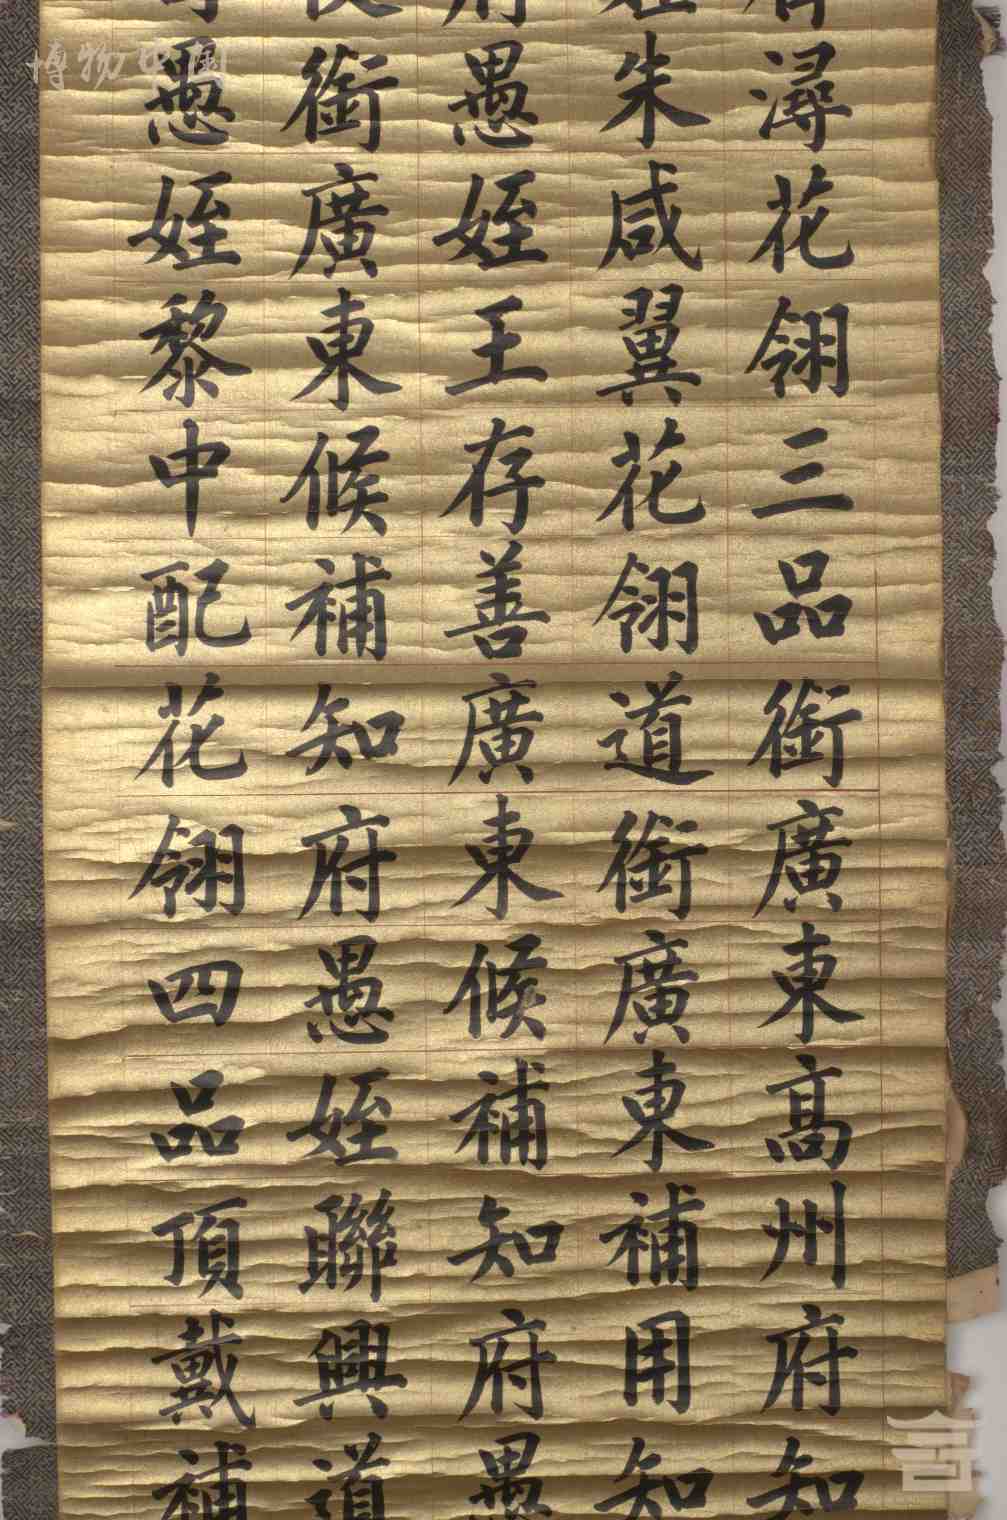 潯花翎三品銜廣東高州府知
朱咸翼花翎道銜廣東補用知
愚姪王存善廣東候補知府愚
銜廣東候補知府愚姪聯興道
愚姪黎中配花翎四品頂戴補
博物中国